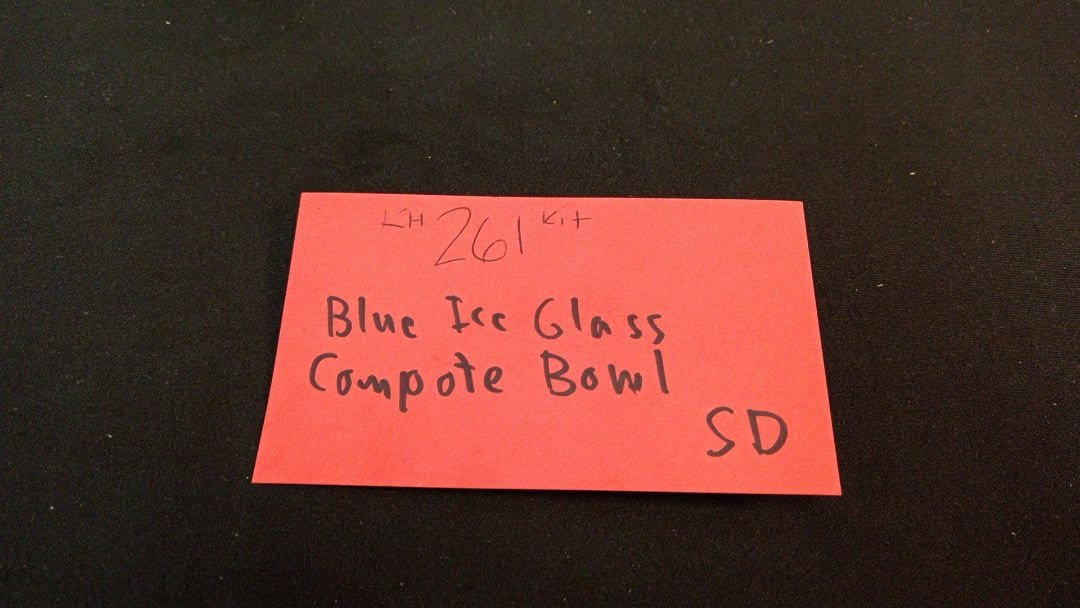 KH 261 Kit
Blue Ice Glass
Compote Bowl
SD